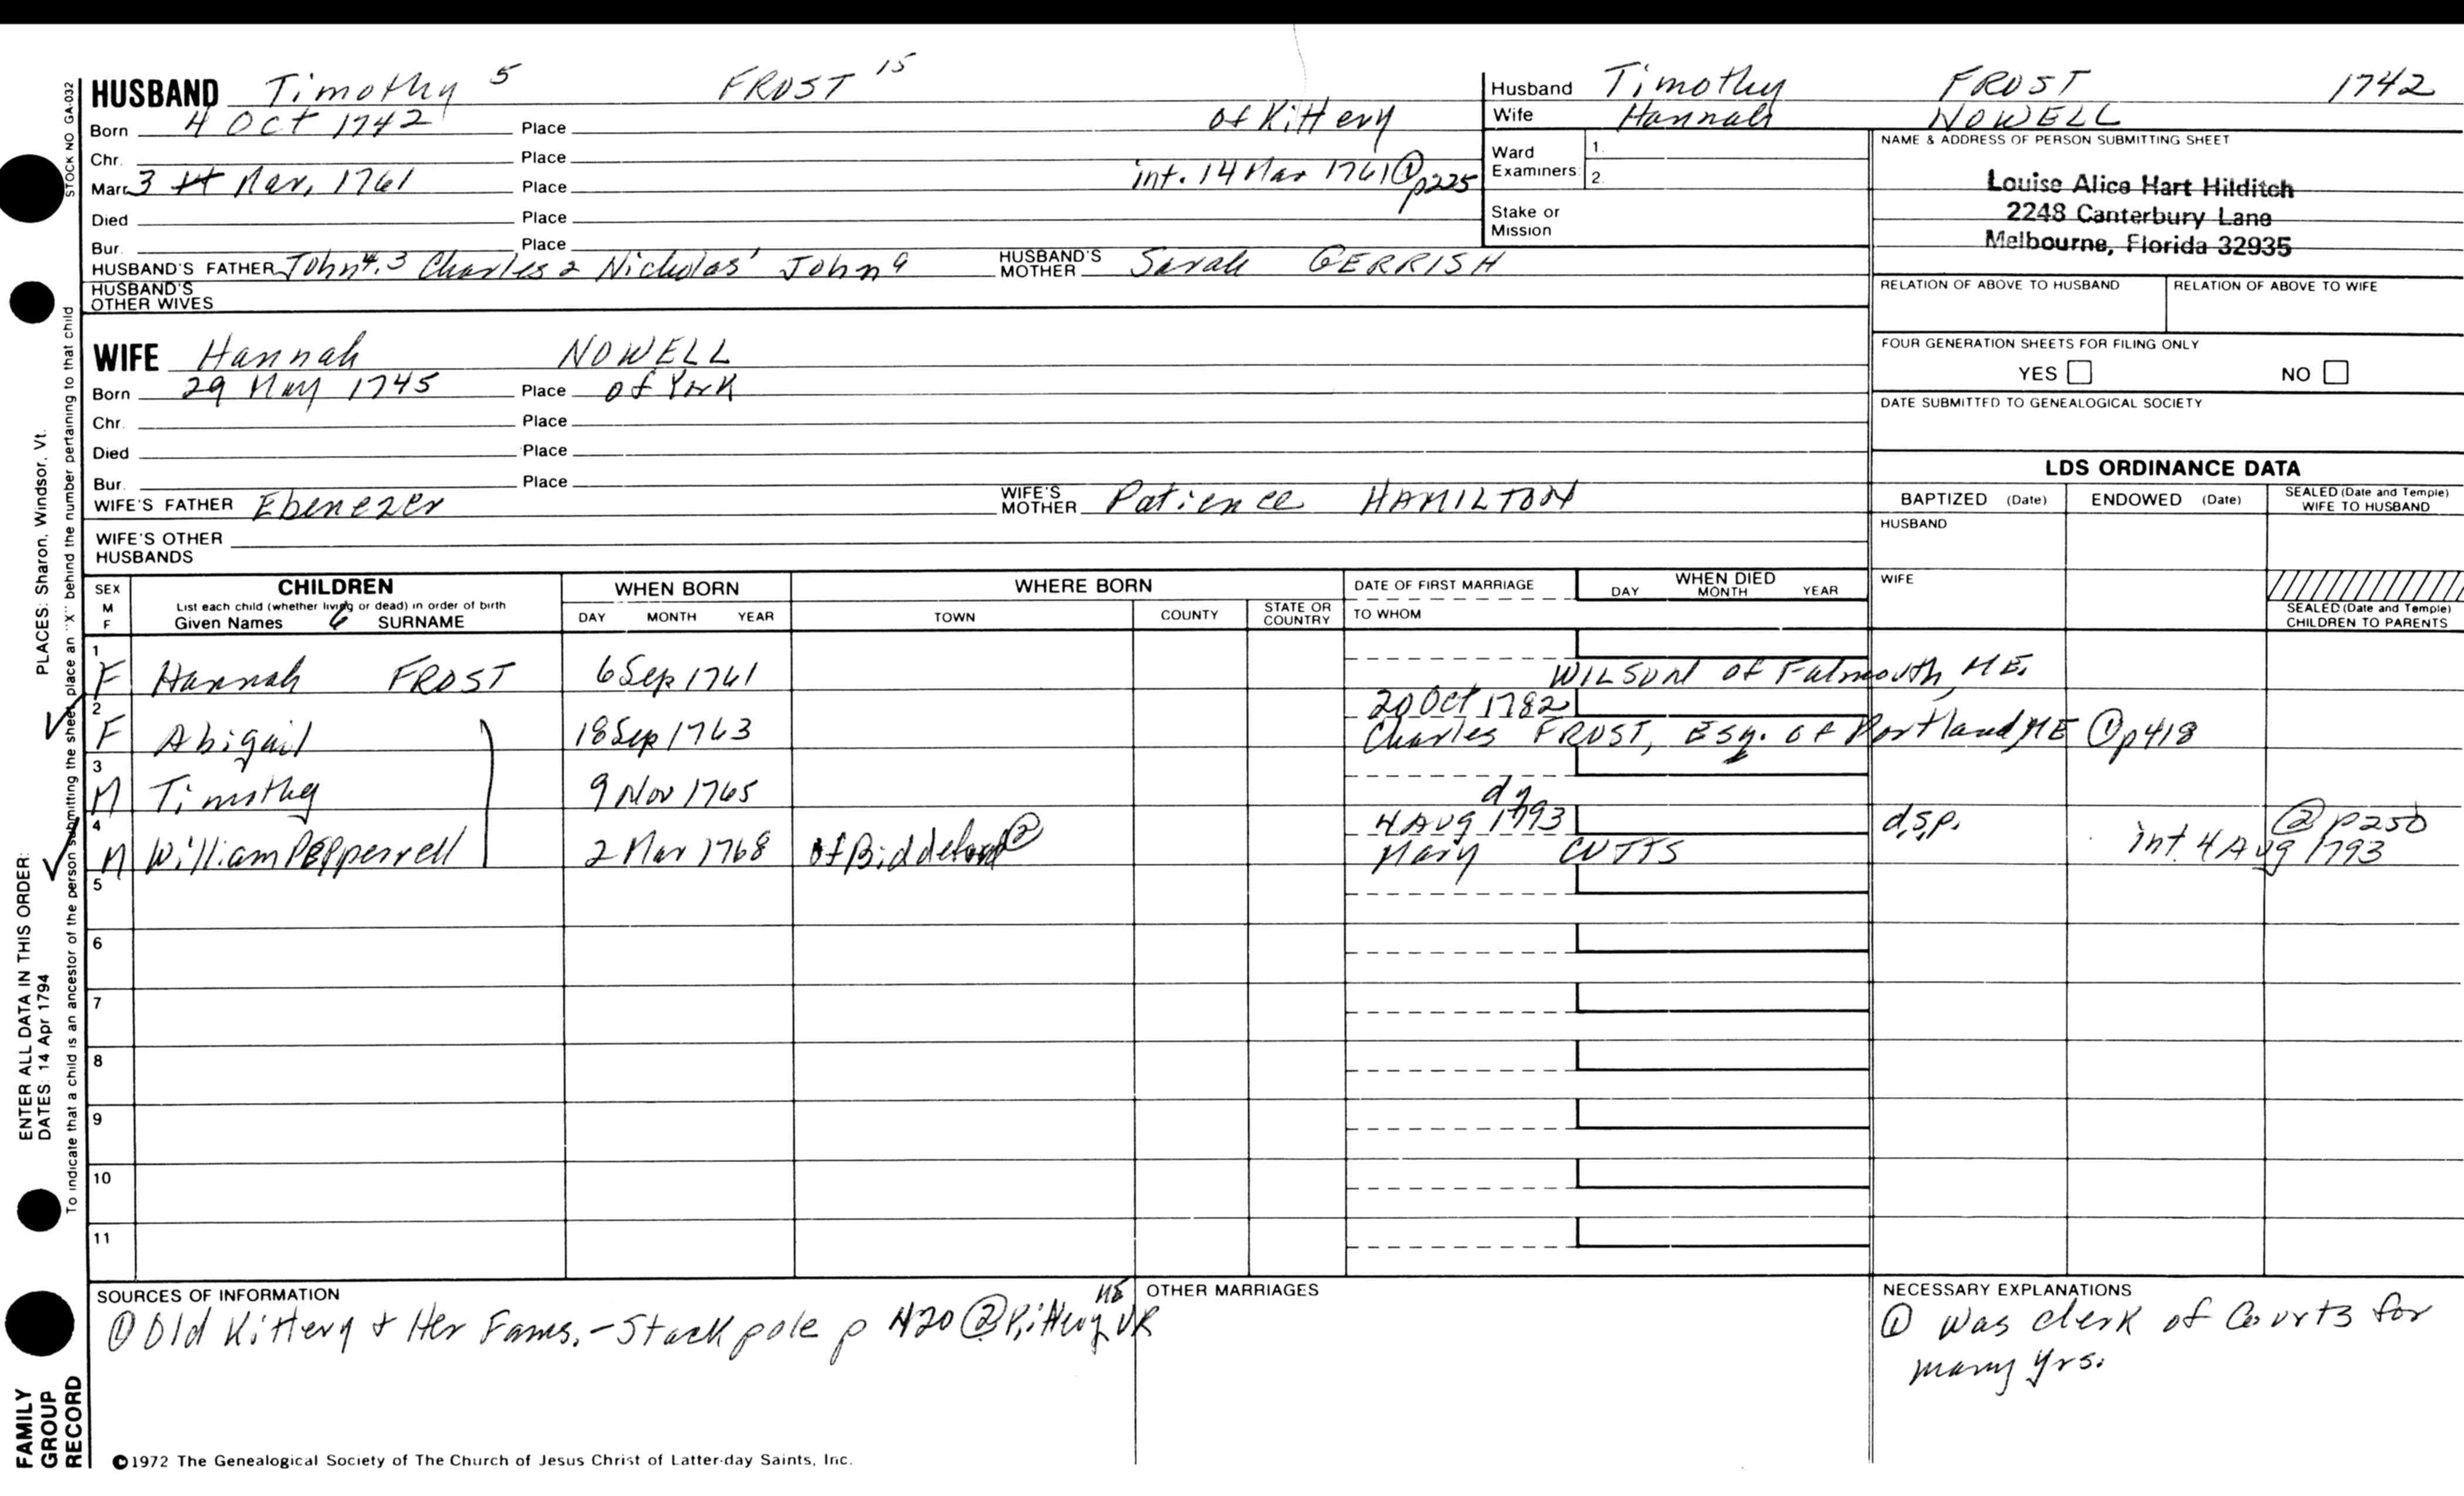 HUSBAND Timothy 5 FROST 15
Born 4 Oct 1742 Place of Kittery
Chr. Place
Marr 3 Mar, 1761 Place int. 14 Mar 1761 ① p225
Died Place
Bur. Place
HUSBAND'S FATHER John 4, 3 Charles 2 Nicholas 1 John a HUSBAND'S MOTHER Sarah GERRISH
HUSBAND'S OTHER WIVES
Husband Timothy FROST 1742
Wife Hannah NOWELL
Ward Examiners: 1. 2.
Stake or Mission
NAME & ADDRESS OF PERSON SUBMITTING SHEET
Louise Alice Hart Hilditch
2248 Canterbury Lane
Melbourne, Florida 32935
RELATION OF ABOVE TO HUSBAND RELATION OF ABOVE TO WIFE
FOUR GENERATION SHEETS FOR FILING ONLY
YES NO
DATE SUBMITTED TO GENEALOGICAL SOCIETY
WIFE Hannah NOWELL
Born 29 May 1745 Place of York
Chr. Place
Died Place
Bur. Place
WIFE'S FATHER Ebenezer WIFE'S MOTHER Patience HAMILTON
WIFE'S OTHER HUSBANDS
LDS ORDINANCE DATA
BAPTIZED (Date) ENDOWED (Date) SEALED (Date and Temple) WIFE TO HUSBAND
HUSBAND
WIFE
SEALED (Date and Temple) CHILDREN TO PARENTS
SEX M F CHILDREN WHEN BORN WHERE BORN DATE OF FIRST MARRIAGE WHEN DIED
List each child (whether living or dead) in order of birth
Given Names 6 SURNAME DAY MONTH YEAR TOWN COUNTY STATE OR COUNTRY TO WHOM DAY MONTH YEAR
1 F Hannah FROST 6 Sep 1761 WILSON of Falmouth, ME.
20 Oct 1782
2 F Abigail 18 Sep 1763 Charles FROST, Esq. of Portland, ME ① p418
3 M Timothy 9 Nov 1765
4 Aug 1793 d.s.p. ② p250
4 M William PEPperrell 2 Mar 1768 of Biddeford ② Mary CUTTS int. 4 Aug 1793
5
6
7
8
9
10
11
SOURCES OF INFORMATION
① Old Kittery & Her Fams. - Stackpole p 420 ② Kittery ME VR
OTHER MARRIAGES
NECESSARY EXPLANATIONS
① was clerk of Courts for
many yrs.
©1972 The Genealogical Society of The Church of Jesus Christ of Latter-day Saints, Inc.
STOCK NO GA-032
ENTER ALL DATA IN THIS ORDER:
DATES: 14 Apr 1794 PLACES: Sharon, Windsor, Vt.
To indicate that a child is an ancestor of the person submitting the sheet, place an "X" behind the number pertaining to that child
FAMILY
GROUP
RECORD